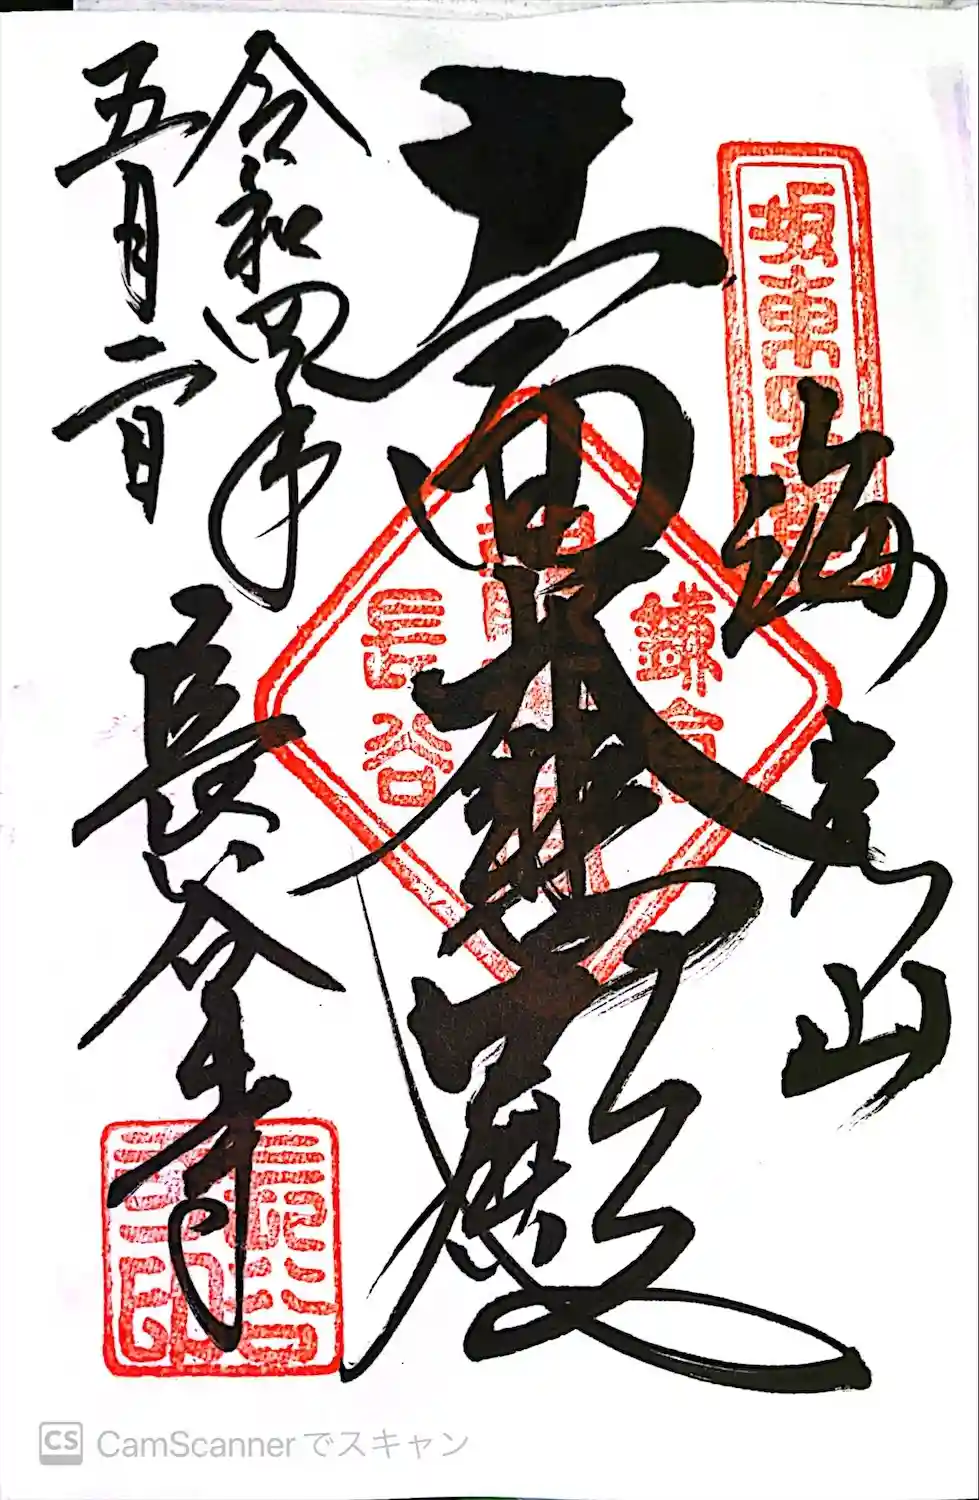 坂東四番
海光山
十一面大悲殿
鎌倉
長谷
令和四年
五月二日
長谷寺
CS CamScannerでスキャン